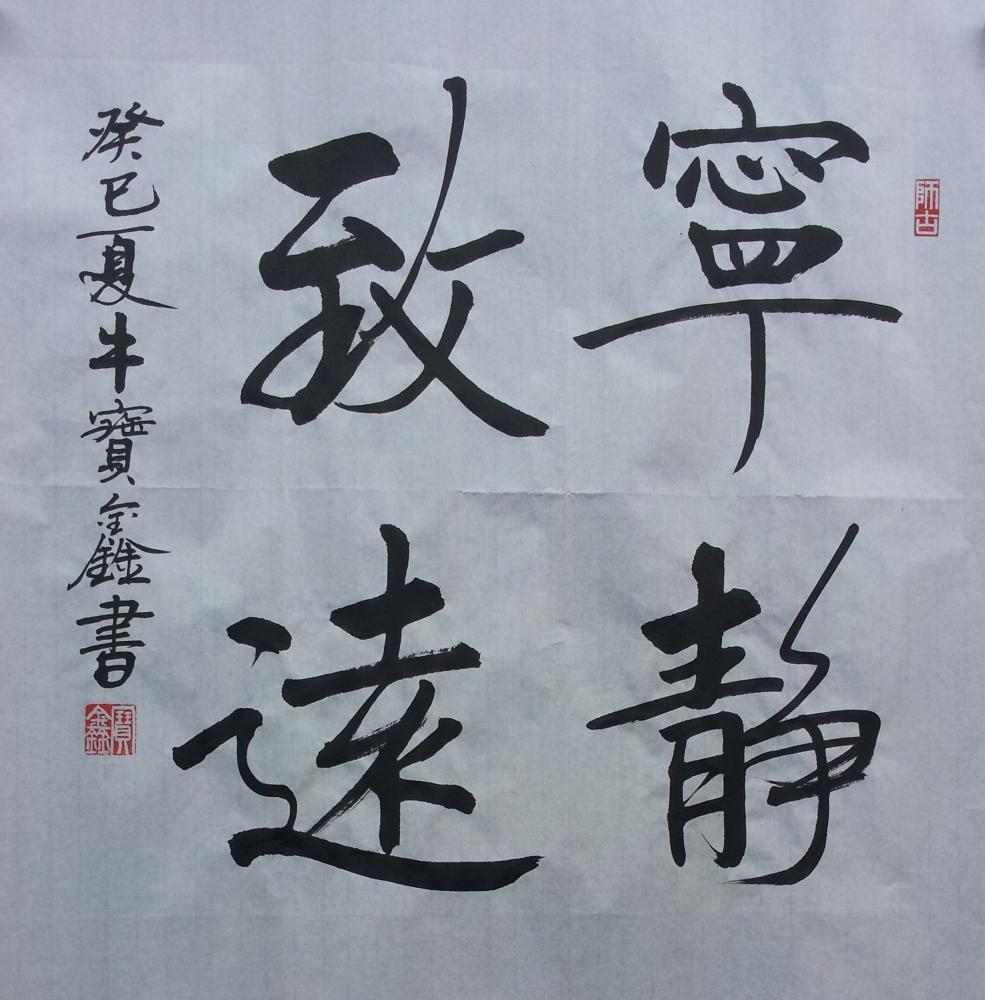 師古
寧靜
致遠
癸巳夏牛寶鑫書
寶鑫